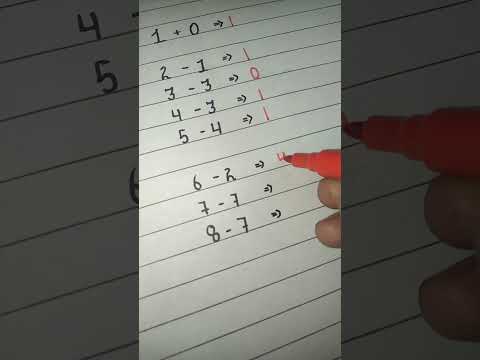 1 + 0 ⇒ 1
2 - 1 ⇒ 1
3 - 3 ⇒ 0
4 - 3 ⇒ 1
5 - 4 ⇒ 1
6 - 2 ⇒ 4
7 - 7 ⇒
8 - 7 ⇒
4
5